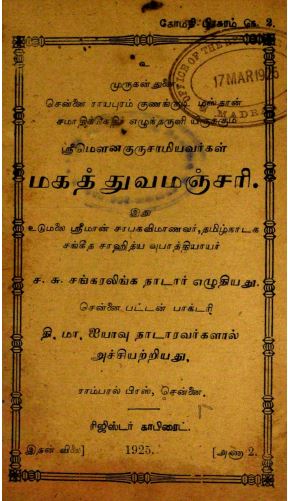 கோமதி பிரசுரம் நெ. 2.
உ
முருகன் துணை
OFFICE OF THE RE
17 MAR 1925
MADRAS
சென்னை ராயபுரம் குணங்குடி மஸ்தான்
சமாதிக்கெதிர் எழுந்தருளி யிருக்கும்
ஸ்ரீமெளனகுருசாமியவர்கள்
மகத்துவமஞ்சரி.
இது
உடுமலை ஸ்ரீமான் சரபகவிமாணவர், தமிழ்நாடக
சங்கீத சாஹித்ய வுபாத்தியாயர்
ச. சு. சங்கரலிங்க நாடார் எழுதியது.
சென்னை பட்டன் பாக்டரி
தி. மா. ஐயாவு நாடாரவர்களால்
அச்சியற்றியது.
ராம்பால் பிரஸ், சென்னை.
ரிஜிஸ்டர் காபிரைட்.
இதன் விலை]
1925.
[அணா 2.